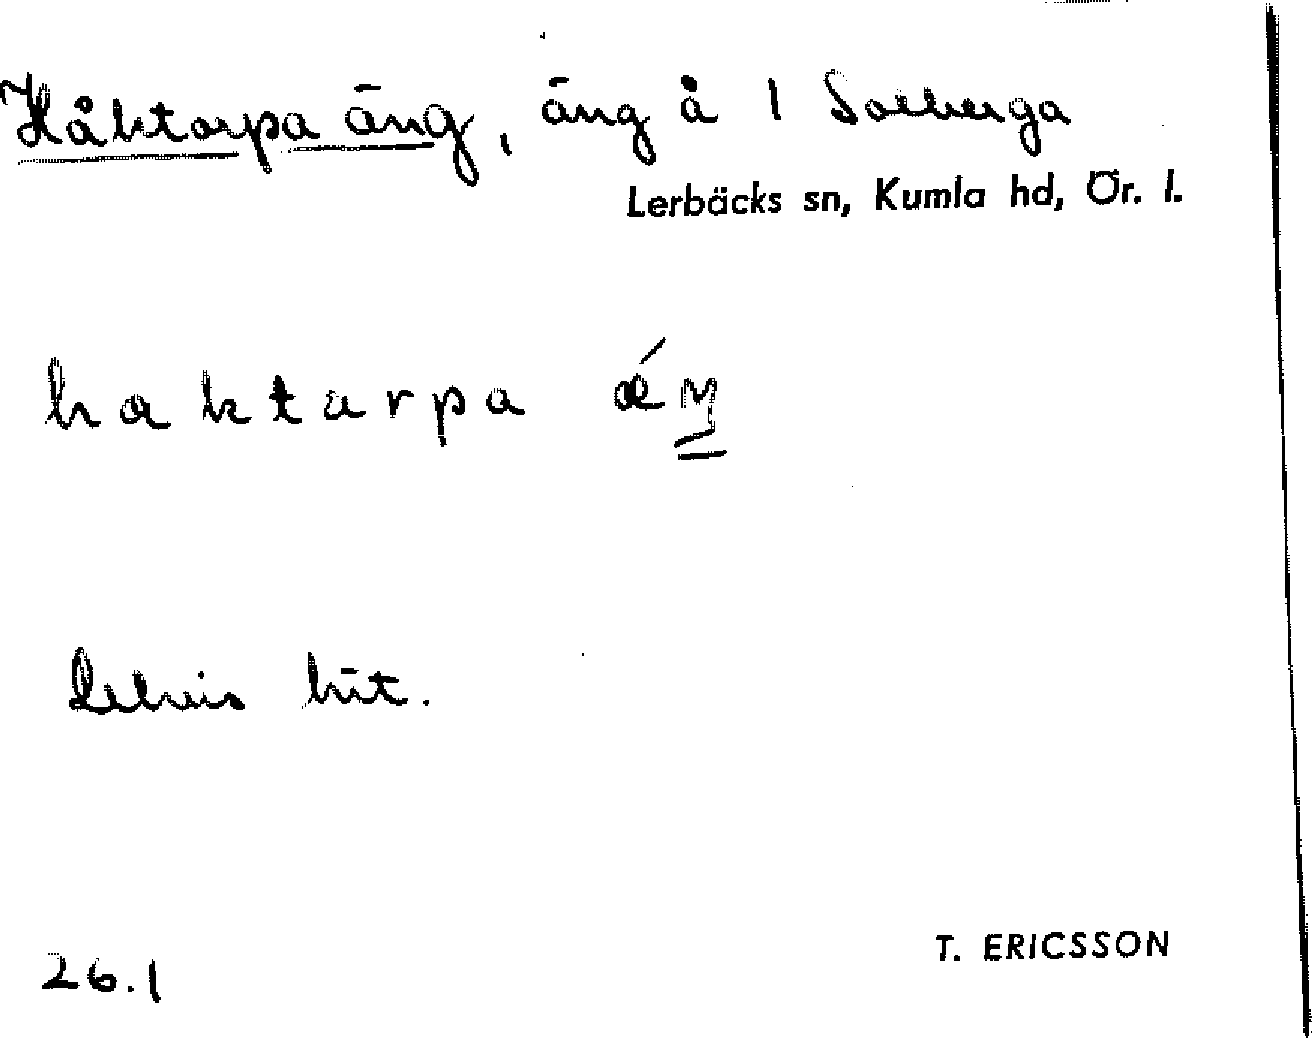 Håktorpa äng, äng å 1 Solberga
Lerbäcks sn, Kumla hd, Ör. l.
haktarpa ǽŋ
hit.
26.1
T. ERICSSON